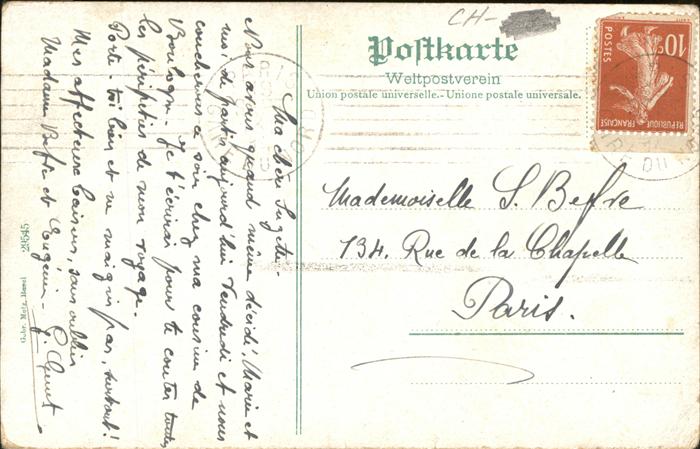 CH-
Postkarte
Weltpostverein
Union postale universelle.-Unione postale universale.
10c
POSTES
REPUBLIQUE FRANÇAISE
Mademoiselle S. Beffre
134. Rue de la Chapelle
Paris.
Ma chère Suzette,
Nous avons quand même décidé, Marie et
moi de partir aujourd'hui Vendredi et nous
coucherons ce soir chez ma cousine de
Boulogne. Je t'écrirai pour te conter toutes
les péripéties de mon voyage.
Porte-toi bien et ne maigris pas, surtout!
Mes affectueux baisers, sans oublier
Madame Beffre et Eugénie.
23545
Gebr. Metz, Basel